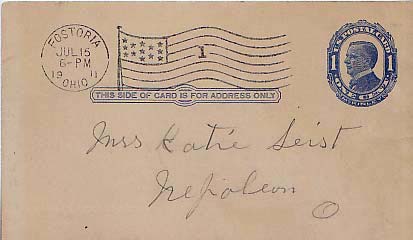 FOSTORIA
JUL 15
6-PM
19 11
OHIO
1
U.S. POSTAL CARD
1 1
ONE CENT
McKINLEY
THIS SIDE OF CARD IS FOR ADDRESS ONLY
Miss Katie Seist
Nepoleon
O